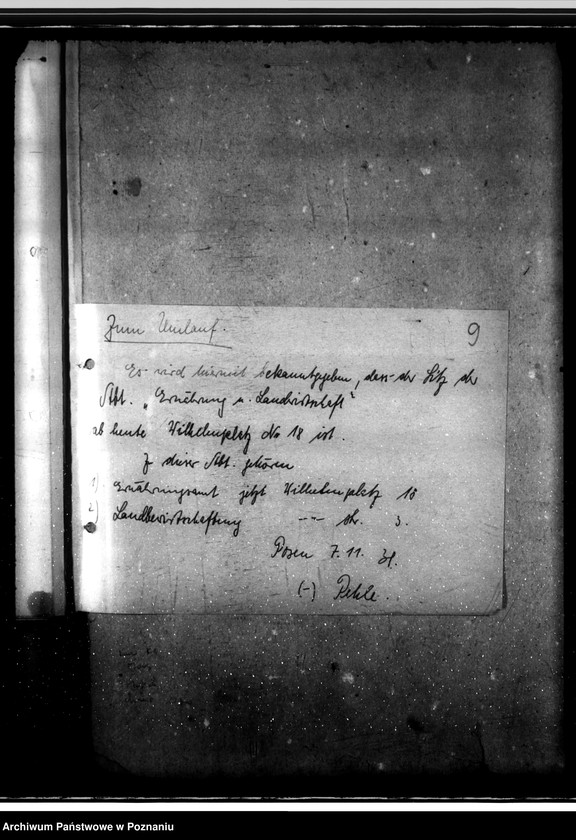 9
Zum Umlauf.
Es wird hiermit bekanntgegeben, dass der Sitz der
Abt. „Ernährung u. Landwirtschaft"
ab heute Wilhelmplatz No 18 ist.
Z dieser Abt. gehören
1) Ernährungsamt jetzt Wilhelmplatz 18
2) Landbewirtschaftung -"- 3.
Posen 7. 11.
(-)
Archiwum Państwowe w Poznaniu